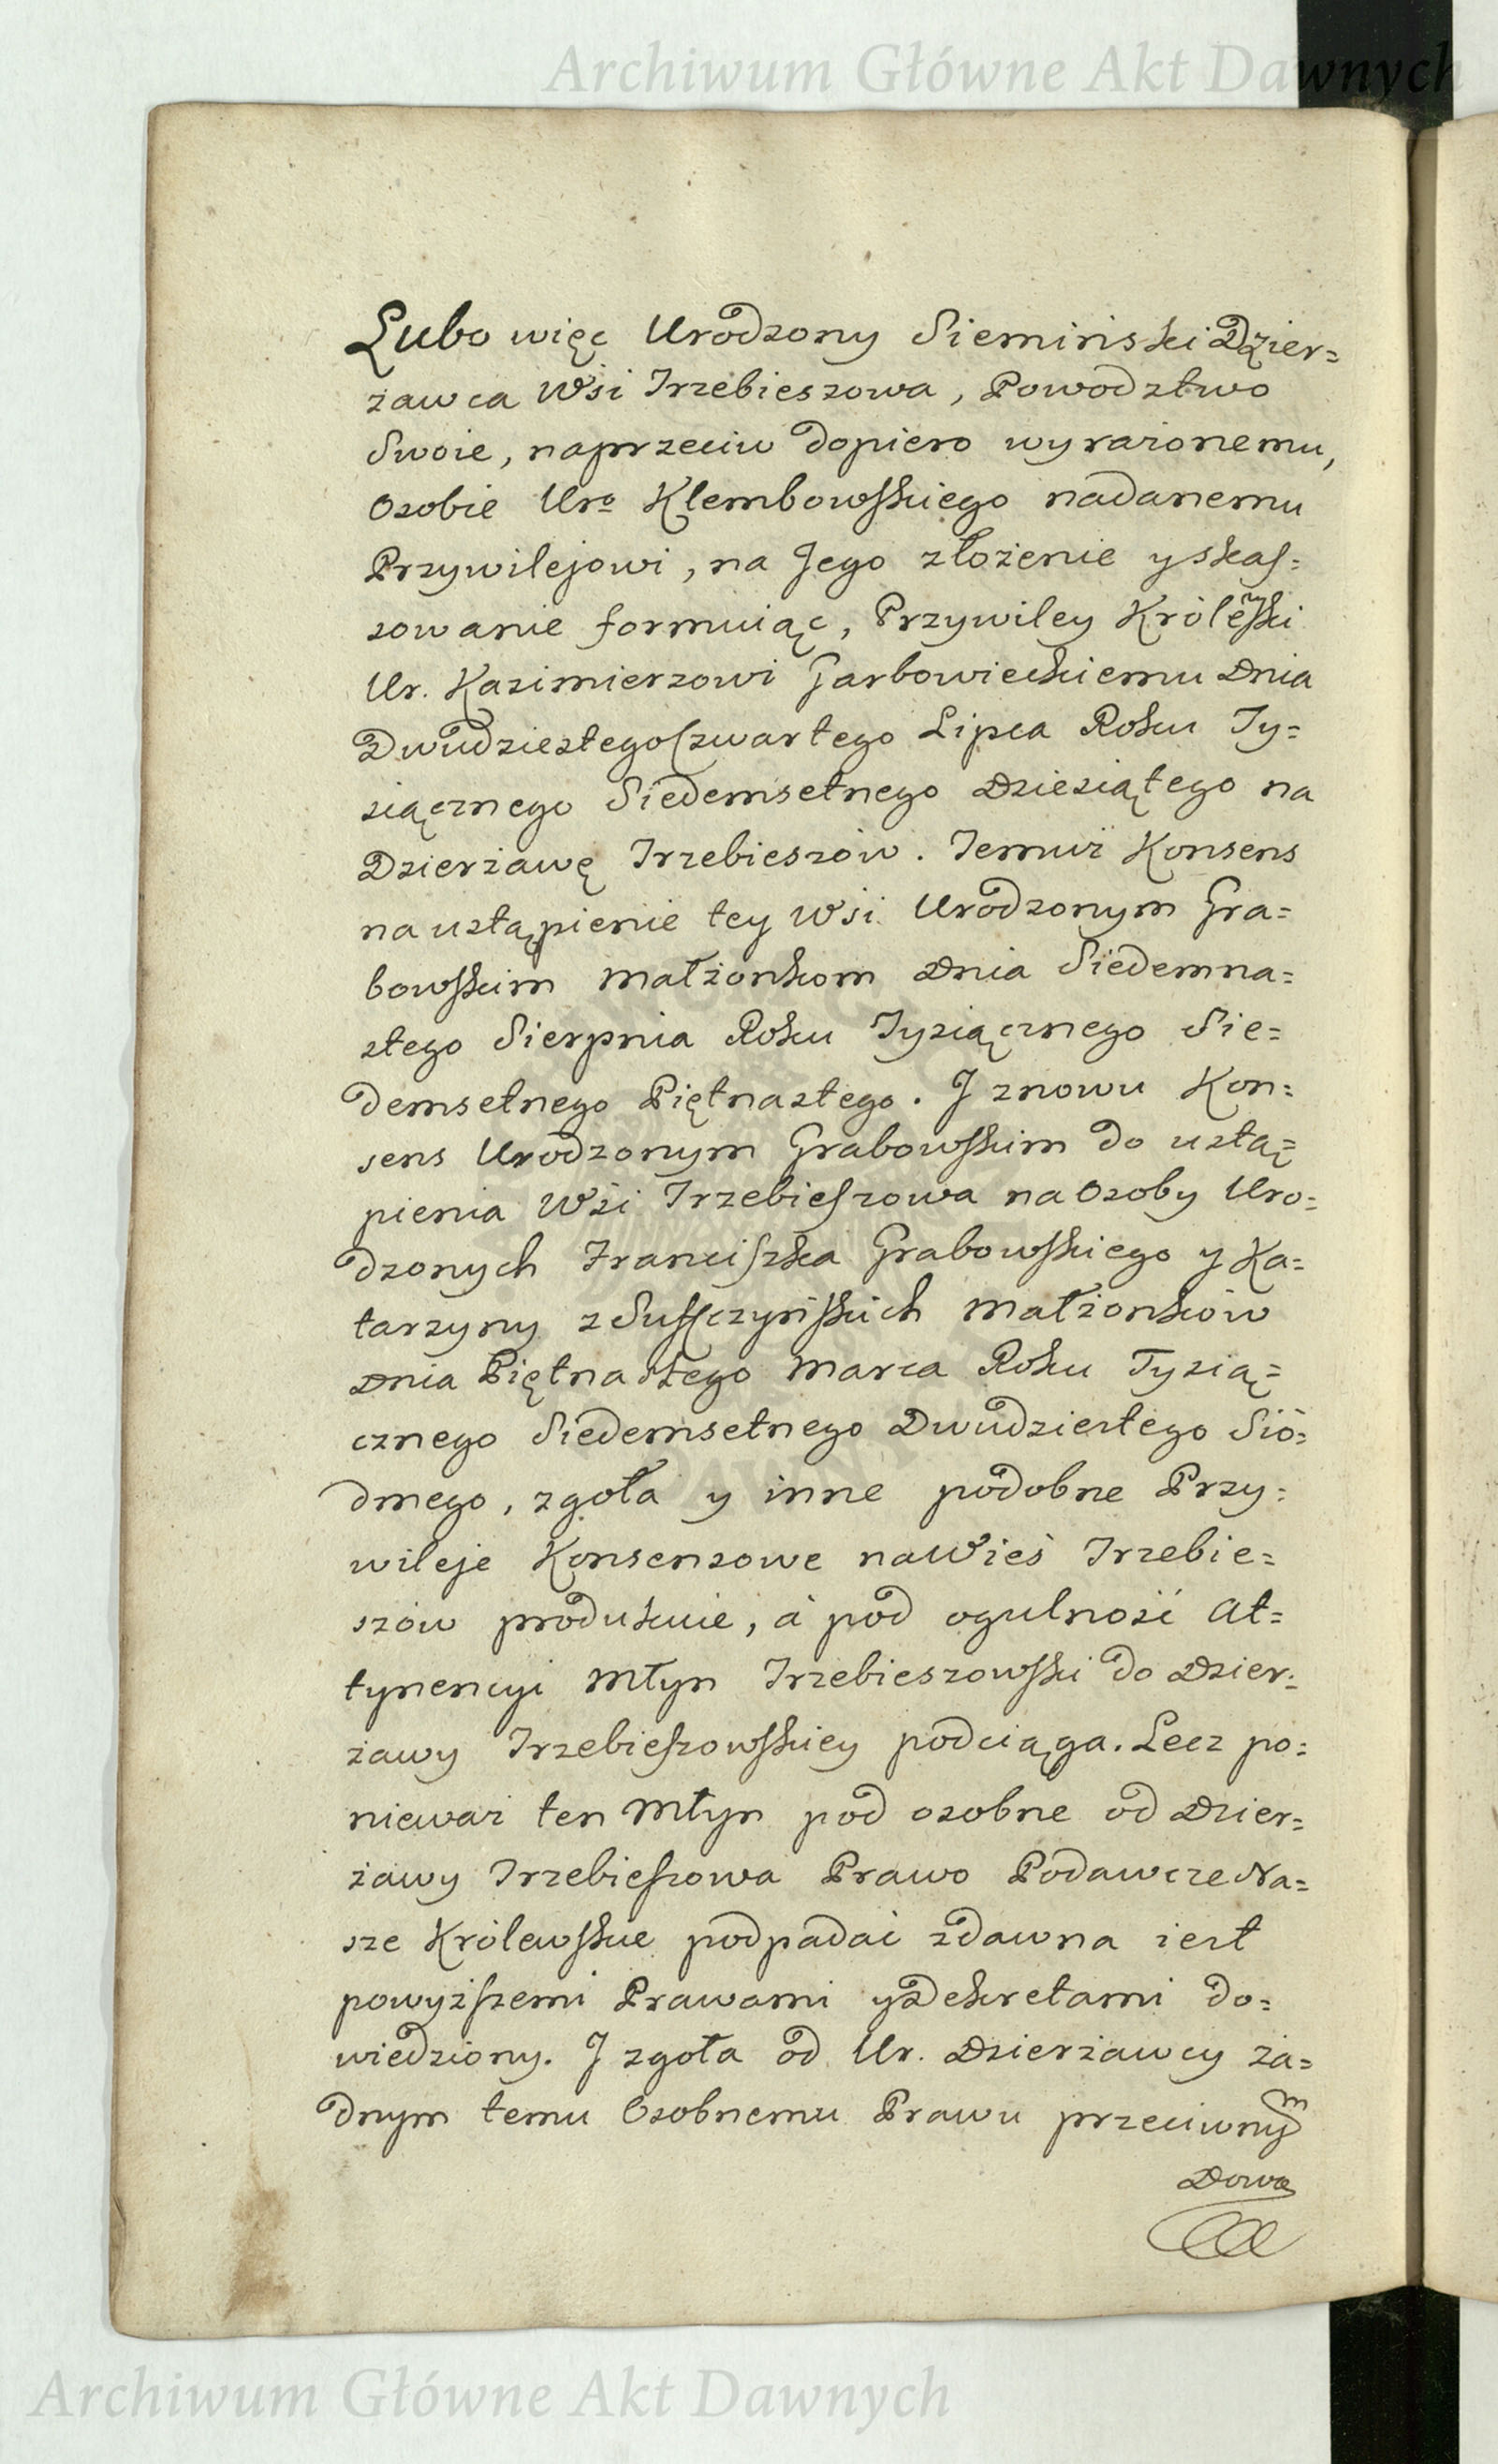 Archiwum Główne Akt Dawnych
Lubo więc Urodzony Siemiński Dzier=
żawca Wśi Trzebieszowa, Powodztwo
Swoie, naprzeciw dopiero wyrażonemu,
Osobie Uro Klembowskiego nadanemu
Przywilejowi, na Jego złożenie y skas=
sowanie formuiąc, Przywiley Królewski
Ur. Kazimierzowi Garbowieckiemu Dnia
Dwudziestego Czwartego Lipca Roku Ty=
siącznego Siedemsetnego Dziesiątego na
Dzierżawę Trzebieszów. Temuż Konsens
na ustąpienie tey Wśi Urodzonym Gra=
bowskim Małżonkom Dnia Siedemna=
stego Sierpnia Roku Tysiącznego Sie=
demsetnego Piętnastego. J znowu Kon=
sens Urodzonym Grabowskim do ustą=
pienia Wśi Trzebieszowa na Osoby Uro=
dzonych Franciszka Grabowskiego y Ka=
tarzyny z Suffczyńskich Małżonków
Dnia Piętnastego Marca Roku Tysią=
cznego Siedemsetnego Dwudziestego Sió=
dmego, zgoła y inne podobne Przy=
wileje Konsensowe na Wieś Trzebie=
szów produkuie, á pod ogulność At=
tynencyi Młyn Trzebieszowski do Dzier=
żawy Trzebieszowskiey podciąga. Lecz po=
nieważ ten Młyn pod osobne od Dzier=
żawy Trzebieszowa Prawo Podawcze Na=
sze Królewskie podpadać zdawna iest
powyższemi Prawami y Dekretami do=
wiedziony. J zgoła od Ur. Dzierżawcy ża=
dnym temu Osobnemu Prawu przeciwnym
Dowo
Archiwum Główne Akt Dawnych